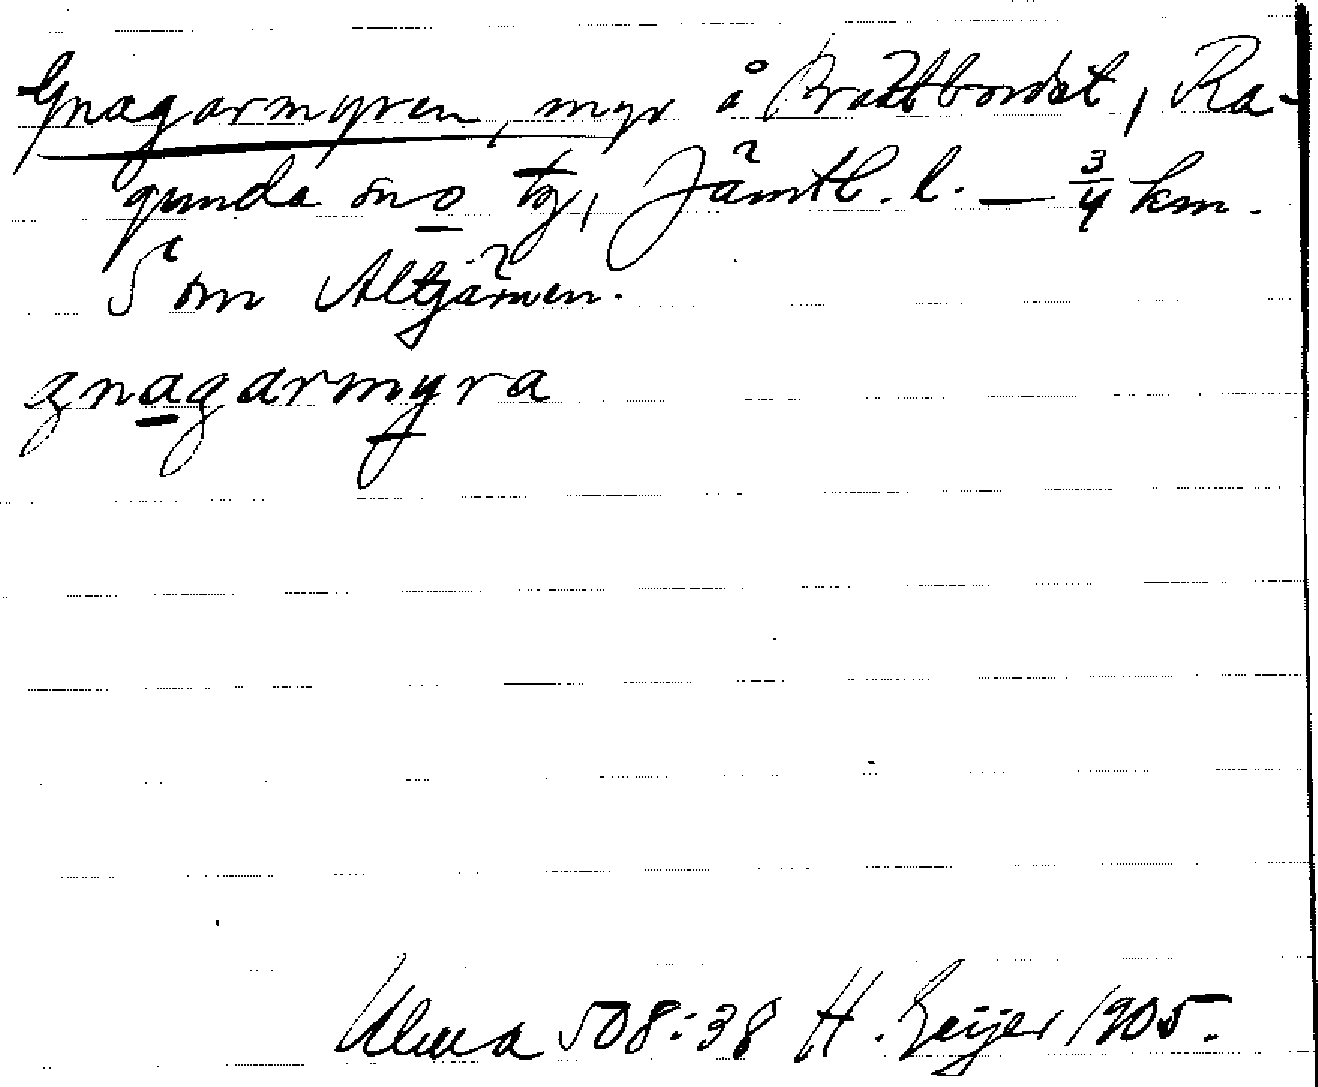 Gnagarmyren, myr å Brattbordet, Ra-
gunda sn o tg, Jämtl. l. — 3/4 km.
S om Altjärnen.
gnagarmyra
Ulma 508:38 H. Geijer 1905.